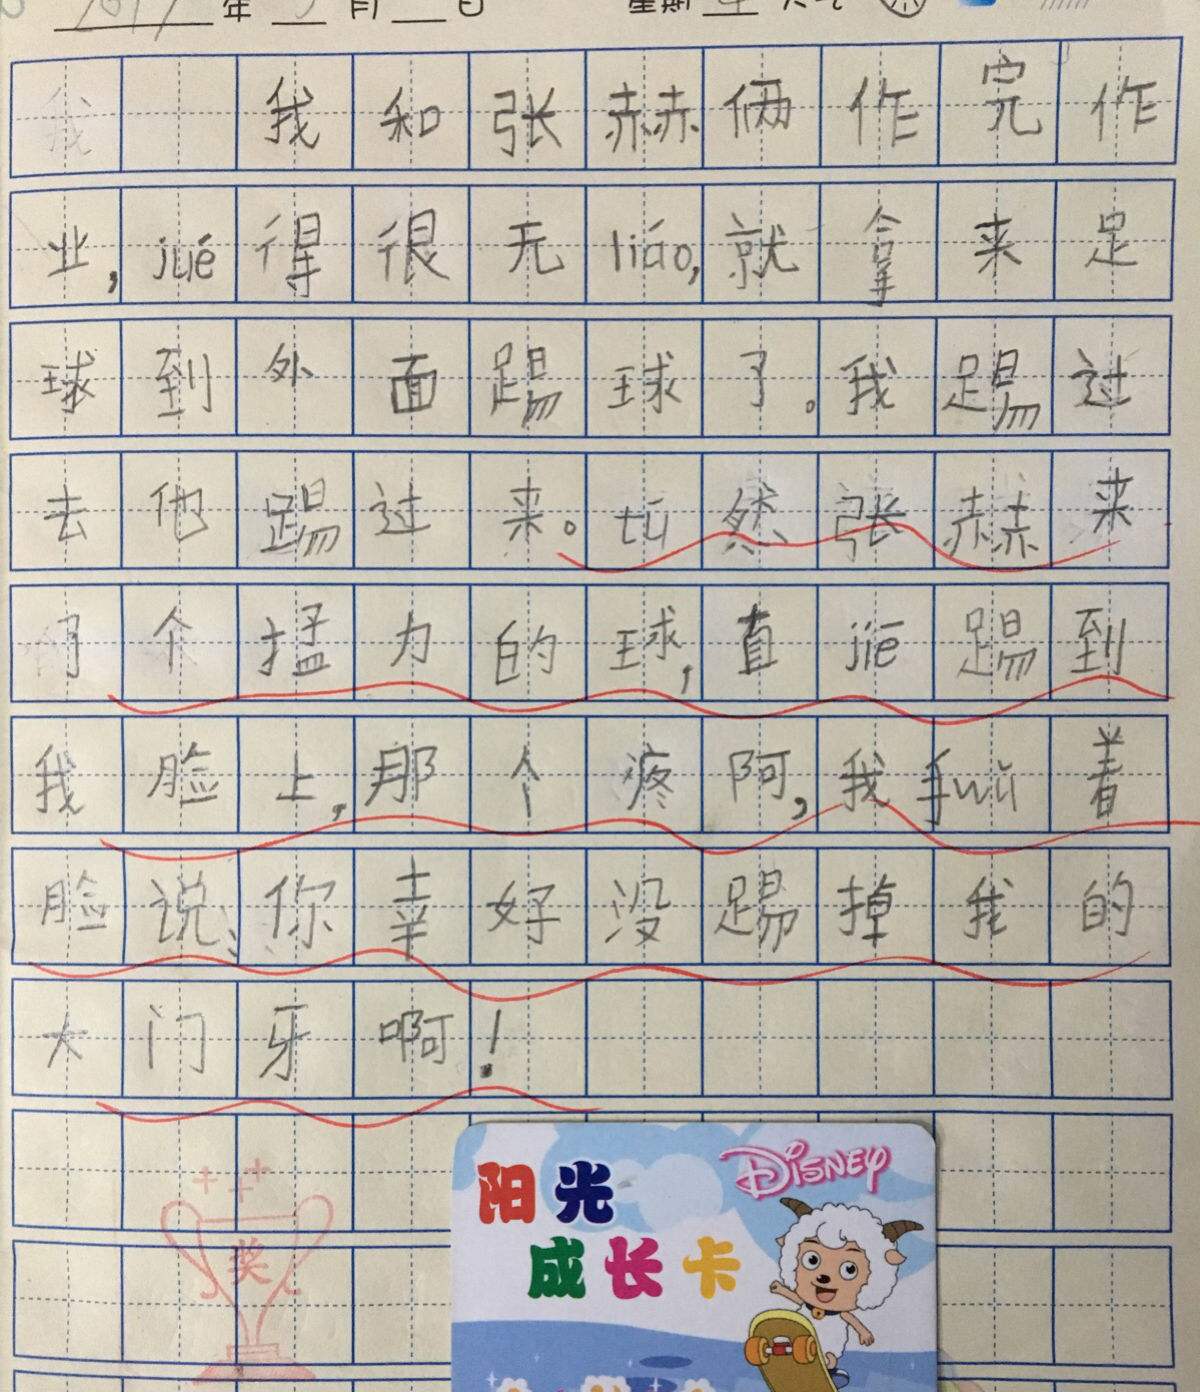 年 月 日 星期
我和张赫赫俩作完作
业,jué得很无liáo,就拿来足
球到外面踢球了。我踢过
去他踢过来。tū然张赫赫来
了个猛力的球,直jiē踢到
我脸上,那个疼阿,我手wǔ着
脸说、你幸好没踢掉我的
大门牙啊!
奖
DISNEY
阳光
成长卡